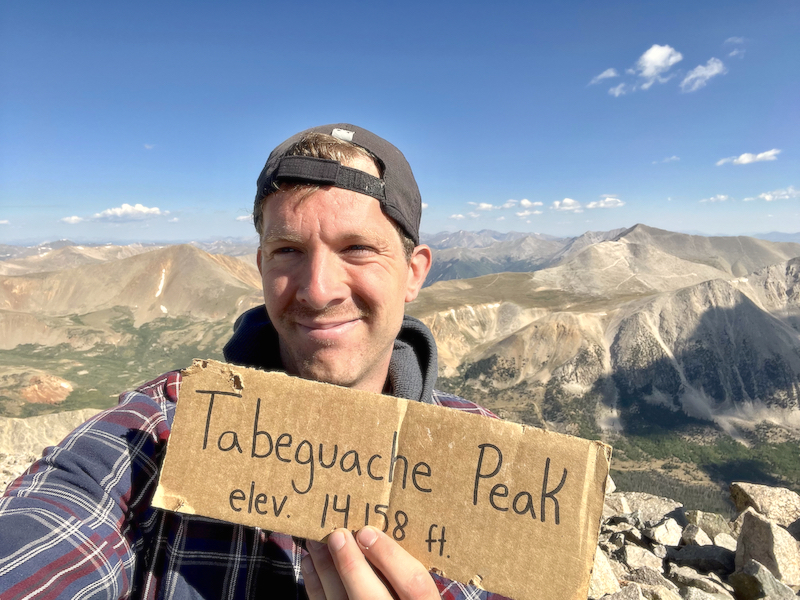 Tabeguache Peak
elev. 14,158 ft.